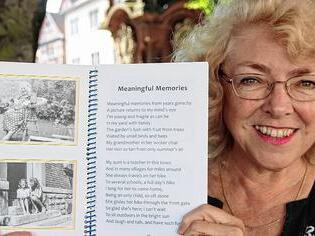 Meaningful Memories
Meaningful memories from years gone by
A picture returns to my mind's eye
I'm young and fragile as can be
In my yard with family
The garden's lush with fruit from trees
Visited by small birds and bees
My grandmother in her wicker chair
Her skin so tan from only summer's air
My aunt is a teacher in this town
And in many villages for miles around
She always travels on her bike
To several schools, a full day's hike
I long for her to come home,
Being an only child, so oft alone
She glides her bike through the front gate
So glad she's here, I can't wait
To sit outdoors in the bright sun
And laugh and talk, and have such fun